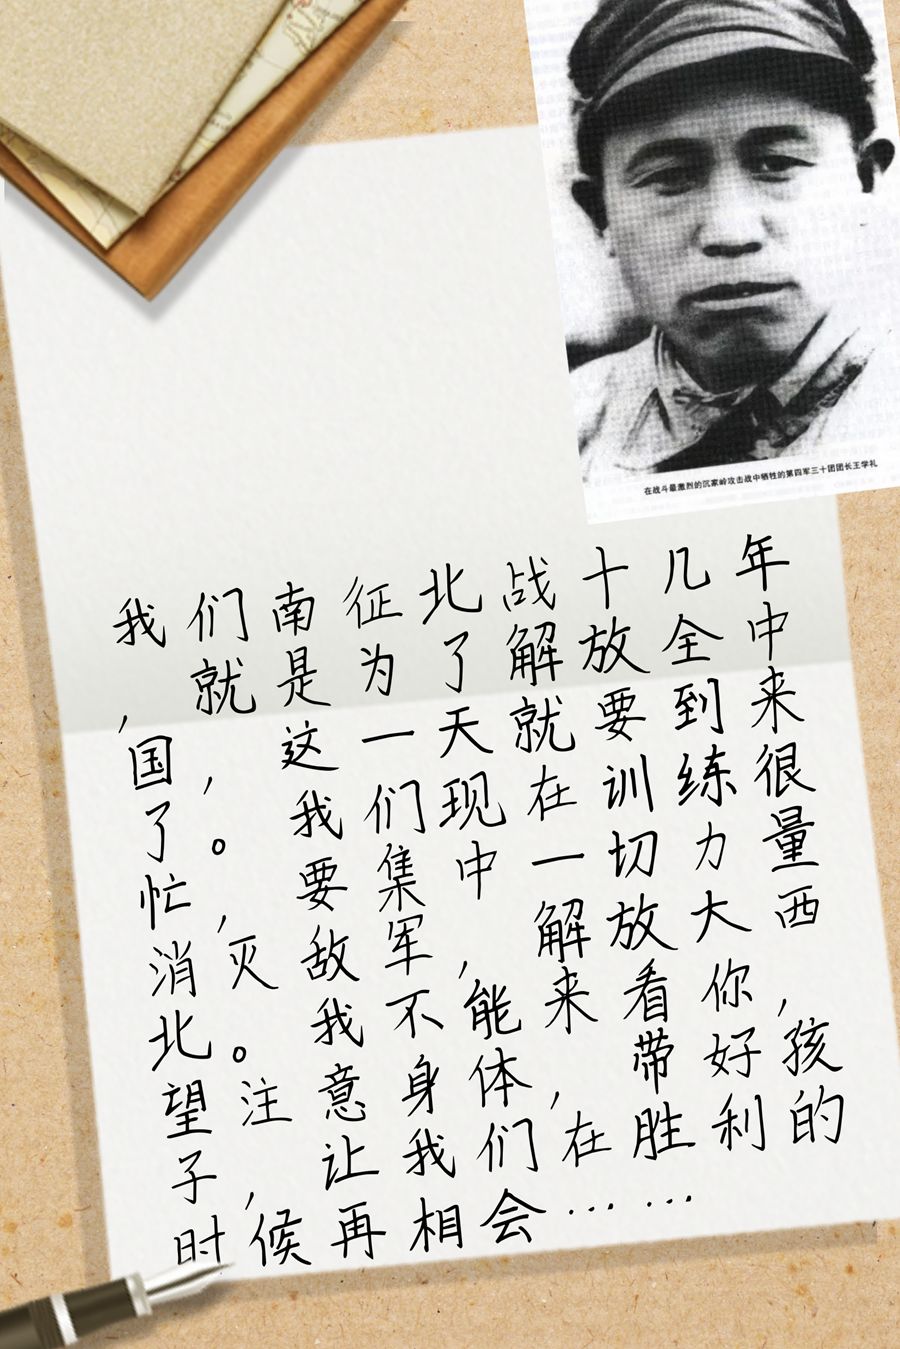 在战斗最激烈的沉家岭攻击战中牺牲的第四军三十团团长王学礼
我们南征北战十几年
，就是为了解放全中
国，这一天就要到来
了。我们现在训练很
忙，要集中一切力量
消灭敌军，解放大西
北。我不能来看你，
望注意身体，带好孩
子，让我们在胜利的
时候再相会……